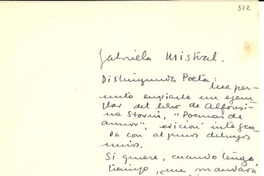 372
Gabriela Mistral.
Distinguida Poeta: Me per-
mito enviarle un ejem-
plar del libro de Alfonsi-
na Storni, "Poemas de
amor", edición integra-
da con algunos dibujos
míos.
Si quiere, cuando tenga
tiempo, me mandará